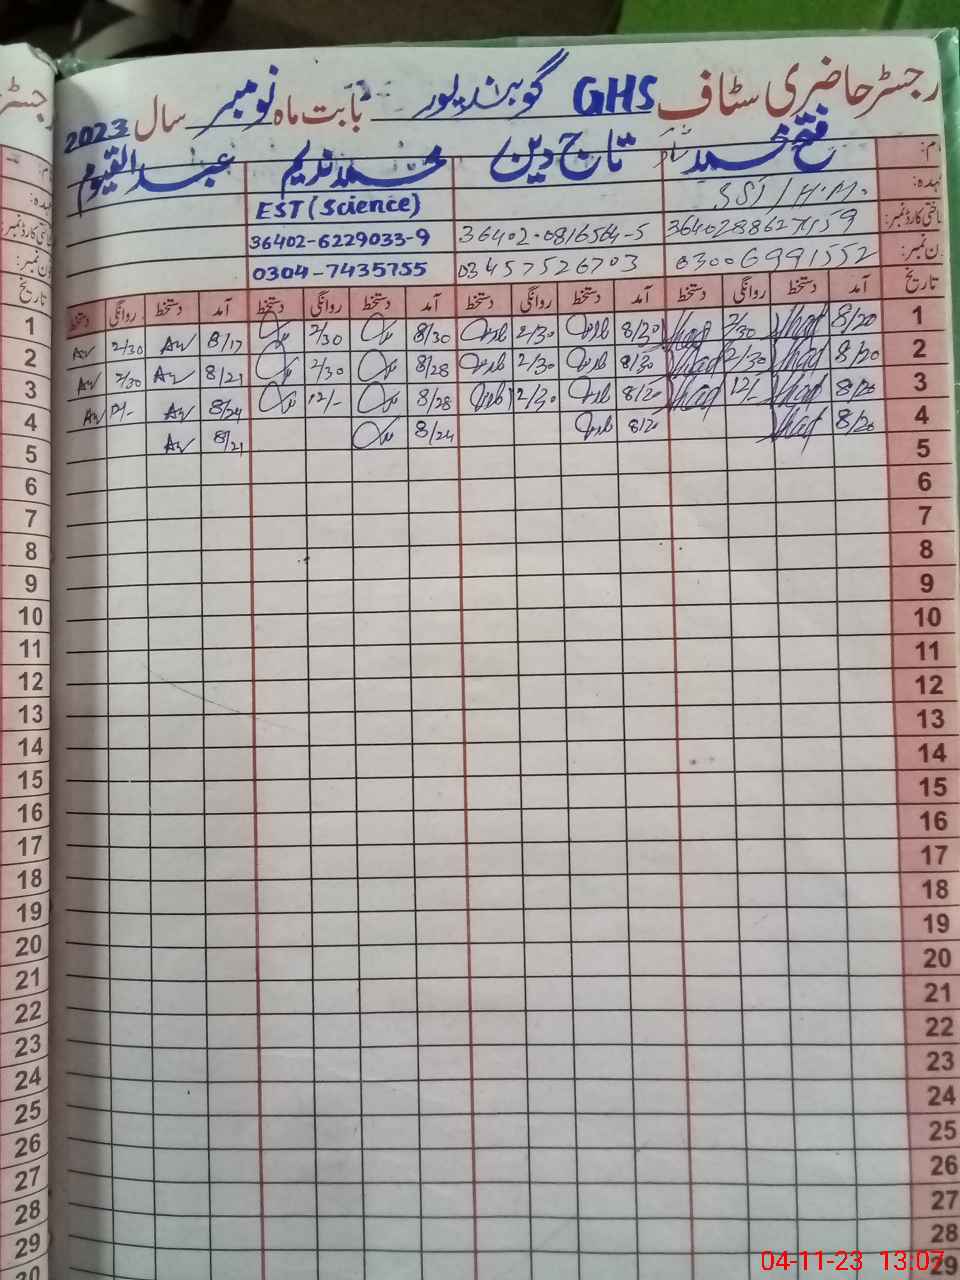 رجسٹر حاضری سٹاف GHS گوبندپور بابت ماہ نومبر سال 2023
فتح محمد تاج دین محمد ندیم عبدالقیوم
SST / H.M. EST (Science)
3640288627159 36402-0816564-5 36402-6229033-9
03006991552 03457526703 0304-7435755
تاریخ آمد دستخط روانگی دستخط آمد دستخط روانگی دستخط آمد دستخط روانگی دستخط آمد دستخط روانگی دستخط
1 8/20 2/30 8/20 2/30 8/30 2/30 8/17 2/30 1
2 8/20 2/30 8/30 2/30 8/28 2/30 8/21 2/30 2
3 8/20 12/- 8/20 12/30 8/28 12/- 8/24 3
4 8/20 8/24 8/21 4
5 5
6 6
7 7
8 8
9 9
10 10
11 11
12 12
13 13
14 14
15 15
16 16
17 17
18 18
19 19
20 20
21 21
22 22
23 23
24 24
25 25
26 26
27 27
28 28
29 29
30
04-11-23 13:07